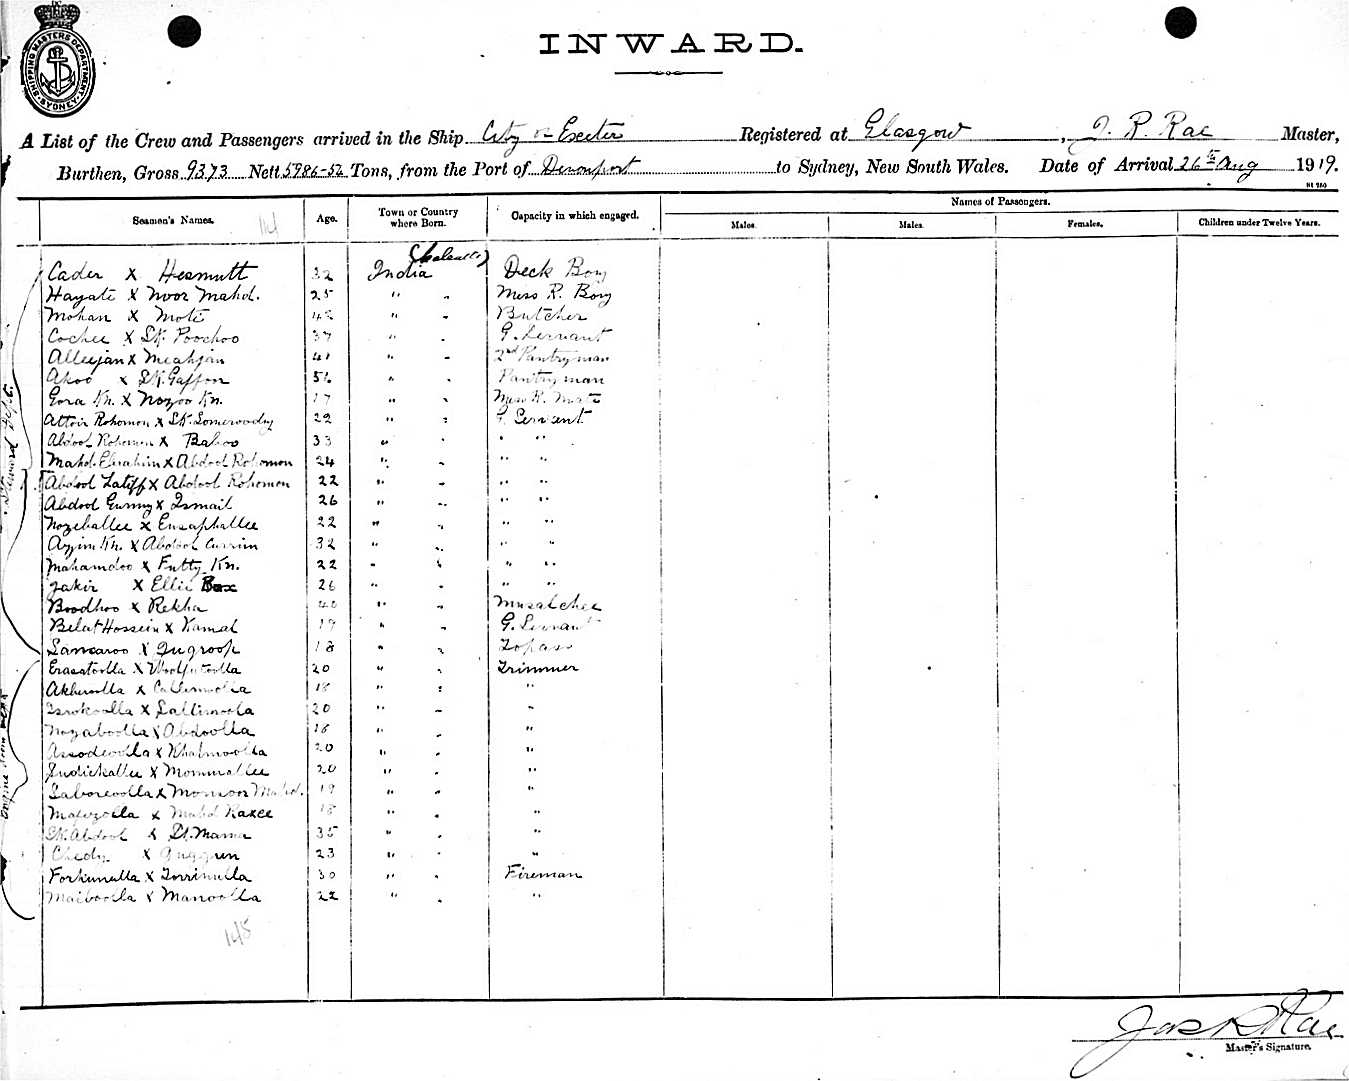 SHIPPING MASTERS DEPARTMENT SYDNEY
INWARD.
A List of the Crew and Passengers arrived in the Ship City of Exeter Registered at Glasgow, J. R. Rae Master,
Burthen, Gross 9373 Nett 5986-52 Tons, from the Port of Devonport to Sydney, New South Wales. Date of Arrival 26th Aug 1919.
Seamen's Names. Age. Town or Country where Born. Capacity in which engaged. Names of Passengers.
Males. Males. Females. Children under Twelve Years.
(Calcutta)
Cader X Hesmutt 32 India Deck Boy
Hayate X Noor Mahd. 25 " " Mess R. Boy
Mohan X Moti 42 " " Butcher
Cochee X Sk. Poochoo 37 " " G. Servant
Alleejan X Meahjan 41 " " 2nd Pantryman
Akoo X Sk. Gaffoor " " Pantryman
Gora Kn. X Nozoo Kn. 17 " " Mess R.
Attoir Rohomon X Sk. Somerooddy 22 " " G. Servant
Abdool Rohomon X Baboo 33 " " " "
Mahd. Ebrahim X Abdool Rohomon 24 " " " "
Abdool Latiff X Abdool Rohomon 22 " " " "
Abdool Gunny X Ismail 26 " " " "
Nozeballee X Ensaphallee 22 " " " "
Azim Kn. X Abdool Currim 32 " " " "
Mahamdoo X Futty Kn. 22 " " " "
Jakir X Ellie Bax 26 " " " "
Boodhoo X Rekha 40 " " Musalchee
Belat Hossein X Kamal 19 " " G. Servant
Sancaroo X Jugroop 18 " " Topass
Erasatoolla X 20 " " Trimmer
Akberoolla X 18 " " "
Isrokoolla X Sallimoola 20 " " "
Nozaboolla X Abdoolla 18 " " "
Assodeoolla X Khalmoolla 20 " " "
Judickallee X Mommallee 20 " " "
Saboreoolla X Monsoor Mahd. 19 " " "
Mafizolla X Mahd Raxee 18 " " "
Sk. Abdool X St. Mama 35 " " "
Chedy X 23 " " "
Forkunulla X Torrimulla 30 " " Fireman
Maiboolla X Manoolla 22 " " "
145
Jas R Rae
Master's Signature.